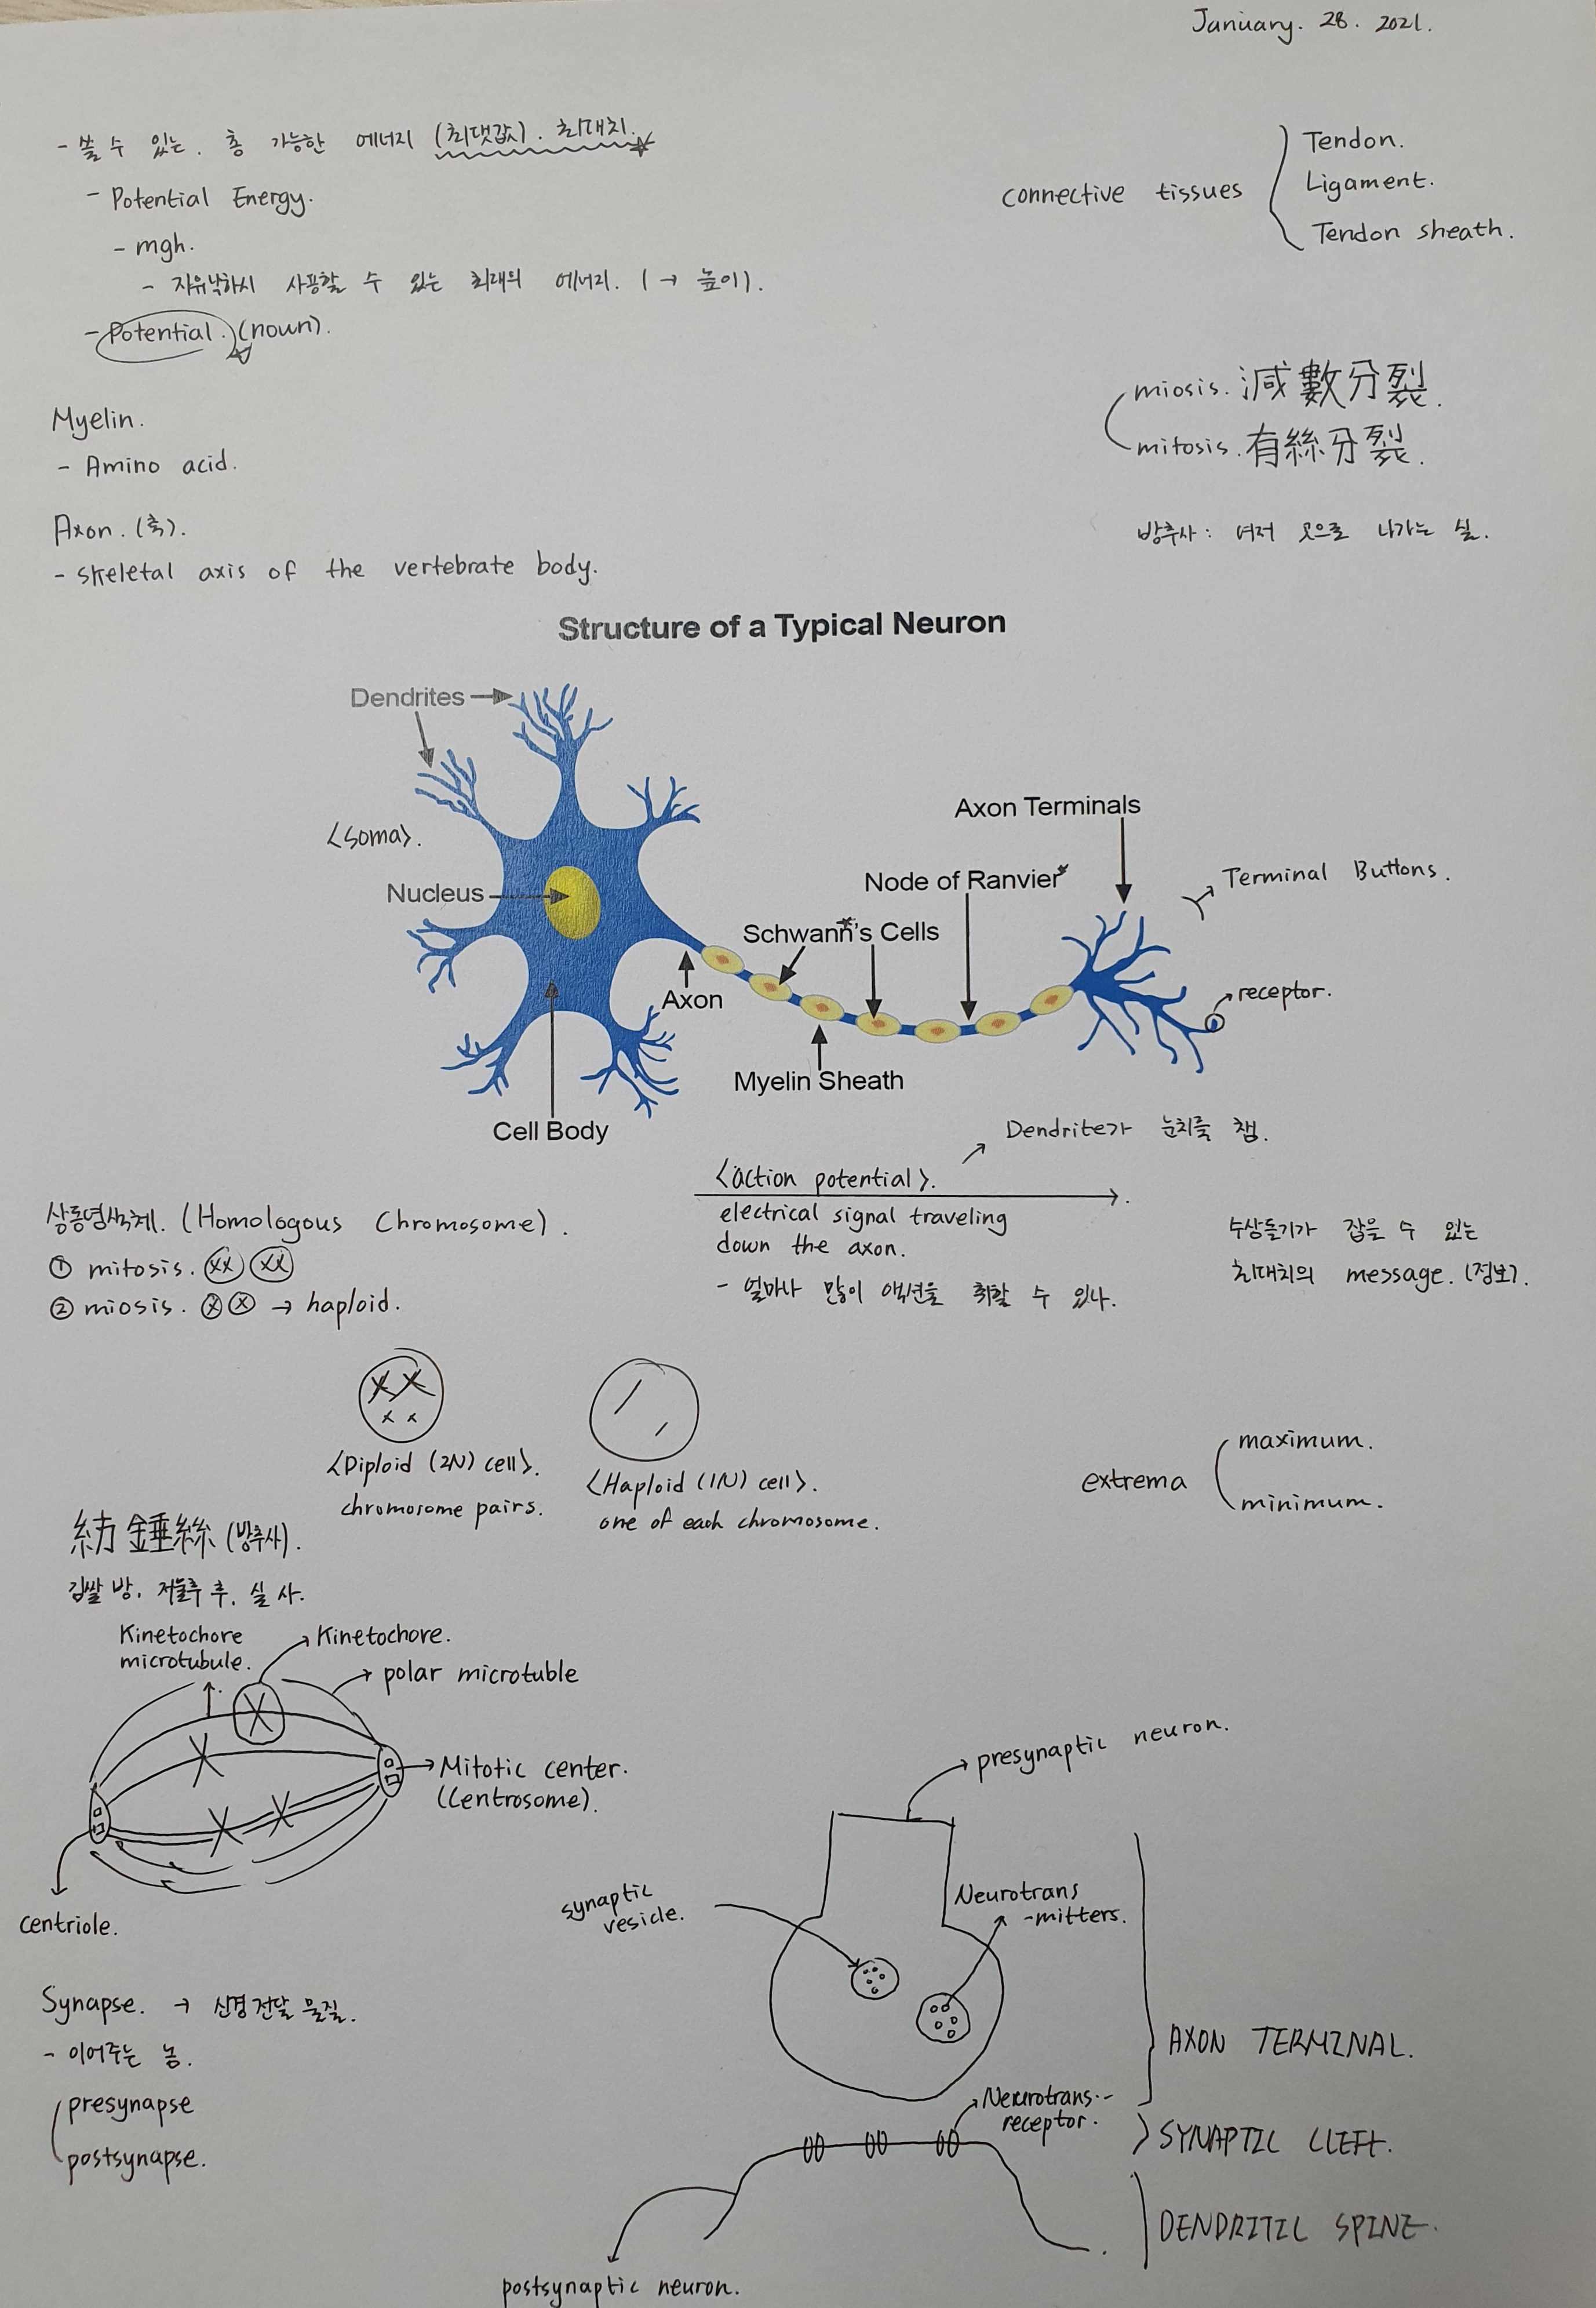 January. 28. 2021.
- 쓸 수 있는. 총 가능한 에너지 (최댓값). 최대치.
- Potential Energy.
- mgh.
- 자유낙하시 사용할 수 있는 최대의 에너지. ( → 높이).
- Potential. (noun).
connective tissues
Tendon.
Ligament.
Tendon sheath.
Myelin.
- Amino acid.
Axon. (축).
- skeletal axis of the vertebrate body.
miosis. 減數分裂.
mitosis. 有絲分裂.
방추사: 여저 곳으로 나가는 실.
Structure of a Typical Neuron
Dendrites
<soma>.
Nucleus
Axon Terminals
Node of Ranvier
Terminal Buttons.
Schwann's Cells
Axon
receptor.
Myelin Sheath
Cell Body
Dendrite가 눈치를 챔.
<action potential>.
electrical signal traveling
down the axon.
- 얼마나 많이 액션을 취할 수 있나.
수상돌기가 잡을 수 있는
최대치의 message. (정보).
상동염색체. (Homologous Chromosome).
① mitosis.
② miosis. → haploid.
<Diploid (2N) cell>.
chromosome pairs.
<Haploid (1N) cell>.
one of each chromosome.
extrema
maximum.
minimum.
紡錘絲 (방추사).
길쌈 방, 저울추 추, 실 사.
Kinetochore
microtubule.
Kinetochore.
polar microtuble
Mitotic center.
(Centrosome).
centriole.
Synapse. → 신경 전달 물질.
- 이어주는 놈.
presynapse
postsynapse.
presynaptic neuron.
synaptic
vesicle.
Neurotrans
-mitters.
AXON TERMINAL.
Neurotrans-
receptor.
SYNAPTIC CLEFT.
DENDRITIC SPINE.
postsynaptic neuron.